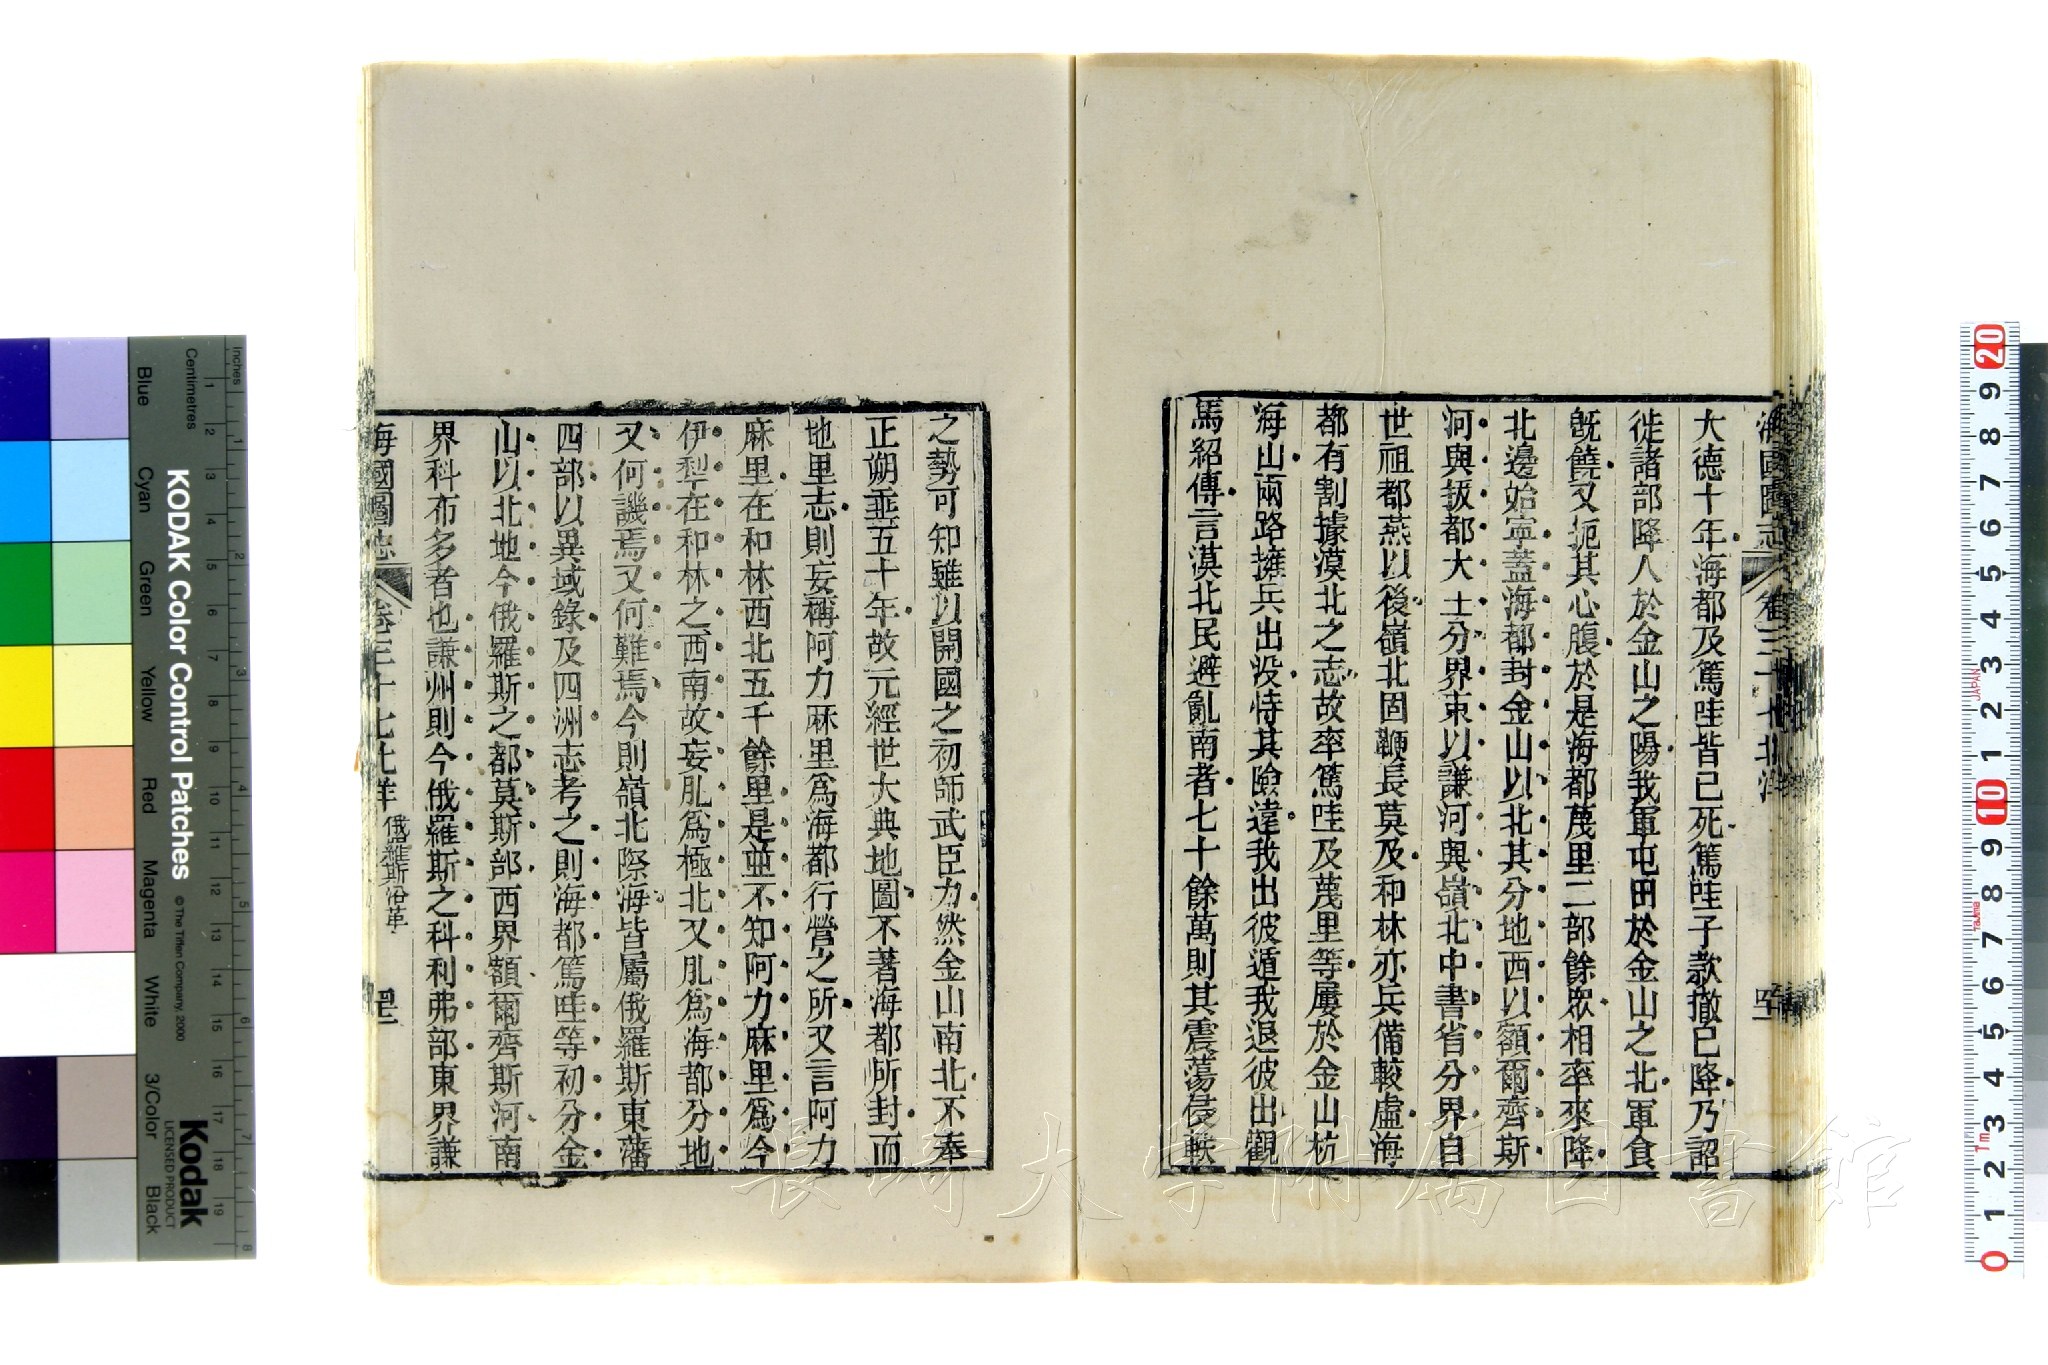 大德十年海都及篤哇皆已死篤哇子款撤已降乃詔
徙諸部降人於金山之陽我軍屯田於金山之北軍食
旣饒又扼其心腹於是海都蔑里二部餘眾相率來降
北邊始寧蓋海都封金山以北其分地西以額爾齊斯
河與拔都大士分界東以謙河與嶺北中書省分界自
世祖都燕以後嶺北固鞭長莫及和林亦兵備較虛海
都有割據漠北之志故率篤哇及蔑里等屢於金山杭
海山兩路擁兵出没恃其險違我出彼遁我退彼出觀
馬紹傳言漠北民避亂南者七十餘萬則其震蕩侵軼
之勢可知雖以開國之初師武臣力然金山南北不奉
正朔埀五十年故元經世大典地圖不著海都所封而
地里志則妄稱阿力麻里爲海都行營之所又言阿力
麻里在和林西北五千餘里是並不知阿力麻里爲今
伊犁在和林之西南故妄肊爲極北又肊爲海都分地
又何譏焉又何難焉今則嶺北際海皆屬俄羅斯東藩
四部以異域錄及四洲志考之則海都篤哇等初分金
山以北地今俄羅斯之都莫斯部西界額爾齊斯河南
界科布多者也謙州則今俄羅斯之科利弗部東界謙
海國圖志 卷三十七北洋 俄羅斯沿革
長崎大学附属図書館
KODAK Color Control Patches
© The Tiffen Company, 2000
Kodak
LICENSED PRODUCT
Inches
Centimetres
Blue Cyan Green Yellow Red Magenta White 3/Color Black
1 2 3 4 5 6 7 8 9 10 11 12 13 14 15 16 17 18 19
1 2 3 4 5 6 7 8
20 9 8 7 6 5 4 3 2 1 10 9 8 7 6 5 4 3 2 1 0
JAPAN
Tajima